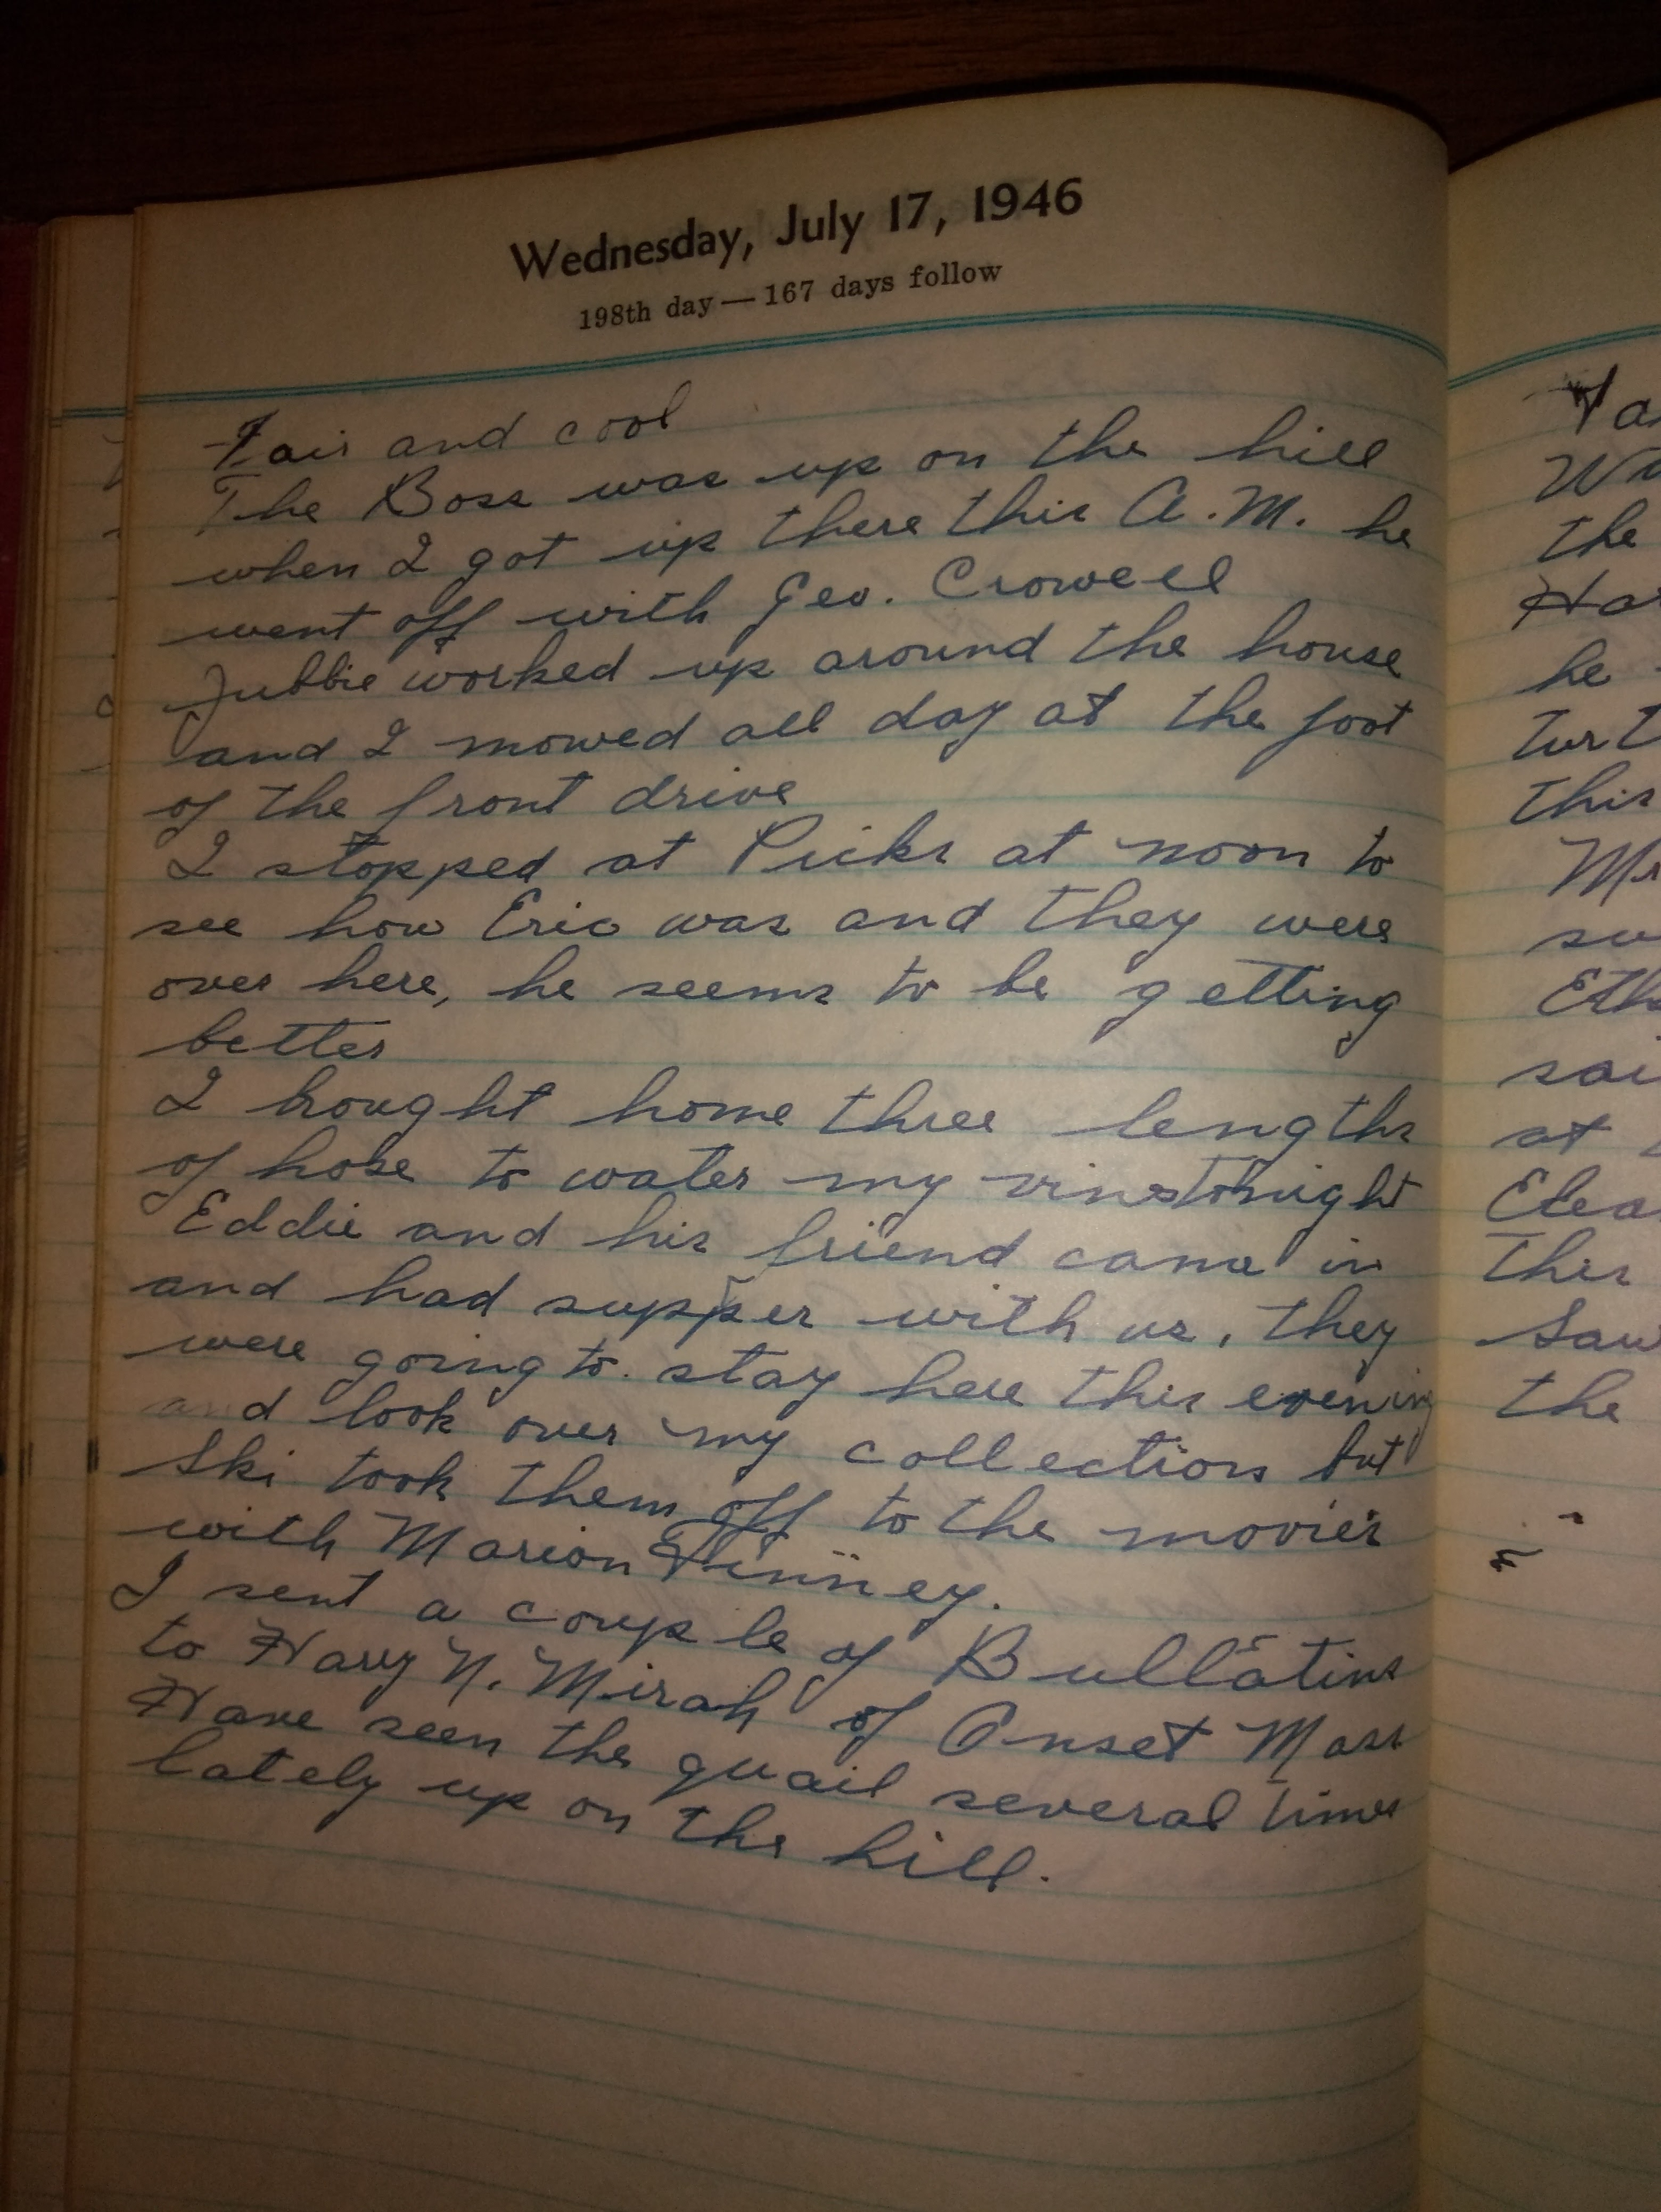 Wednesday, July 17, 1946
198th day — 167 days follow
Fair and cool
The Boss was up on the hill
when I got up there this A.M. he
went off with Geo. Crowell
Jubbie worked up around the house
and I mowed all day at the foot
of the front drive
I stopped at Picks at noon to
see how Eric was and they were
over here, he seems to be getting
better
I brought home three lengths
of hose to water my vines tonight
Eddie and his friend came in
and had supper with us, they
were going to stay here this evening
and look over my collections but
Ski took them off to the movies
with Marion Finney.
I sent a couple of Bullatins
to Harry N. Mirah of Onset Mass
Have seen the quail several times
lately up on the hill.
the
he
this
Mr
at
This
Saw
the